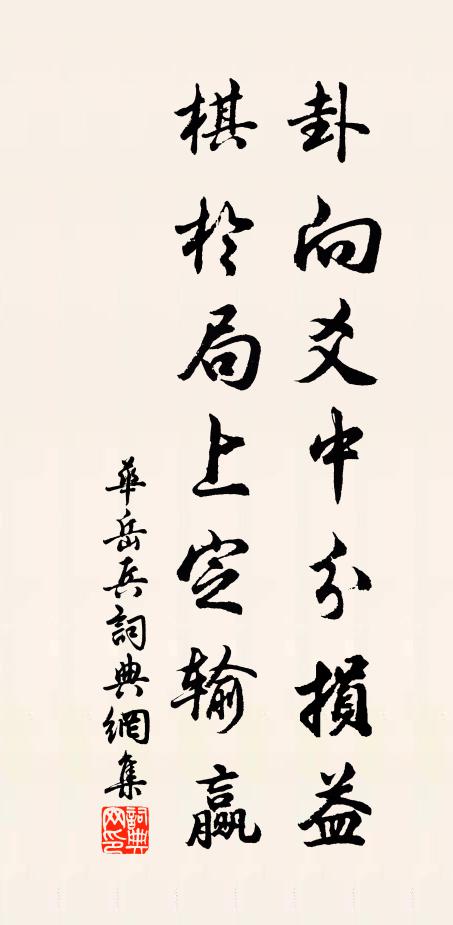 卦向爻中分損益
棋於局上定输赢
華岳兵詞典網集
詞典网印